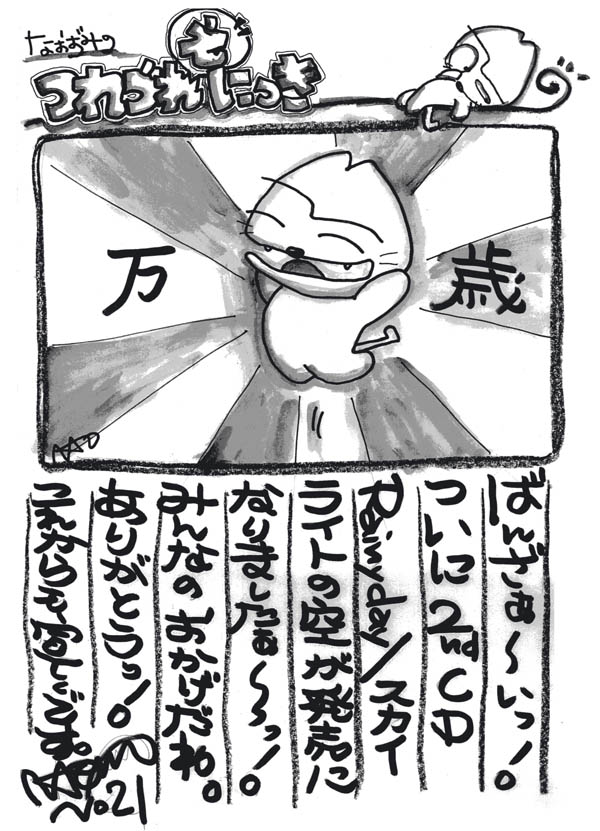 なおおみの
つれづれ
にっき
万 歳
ばんざぁ〜いっ!。
ついに2nd CD
Rainy day/スカイ
ライトの空が発売に
なりましたぁ〜っ!。
みんなのおかげだね。
ありがとうっ!。
これからも
です。
No.21